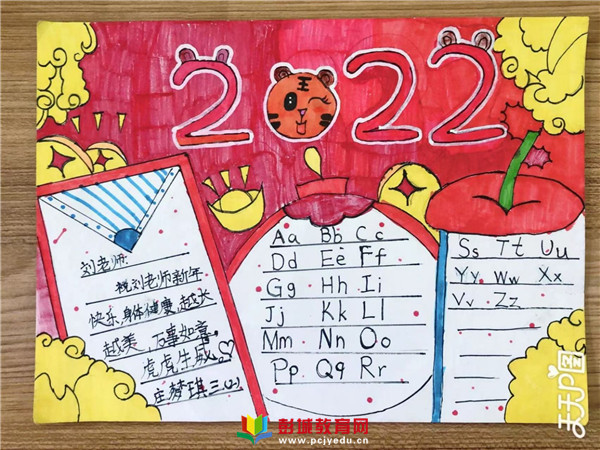 2022
刘老师:
祝刘老师新年
快乐,身体健康,越长
越美,万事如意,
虎虎生威
庄梦琪 三(2)
Aa Bb Cc
Dd Ee Ff
Gg Hh Ii
Jj Kk Ll
Mm Nn Oo
Pp Qq Rr
Ss Tt Uu
Yy Ww Xx
Vv Zz
彭城教育网
www.pcjyedu.cn
天天P图